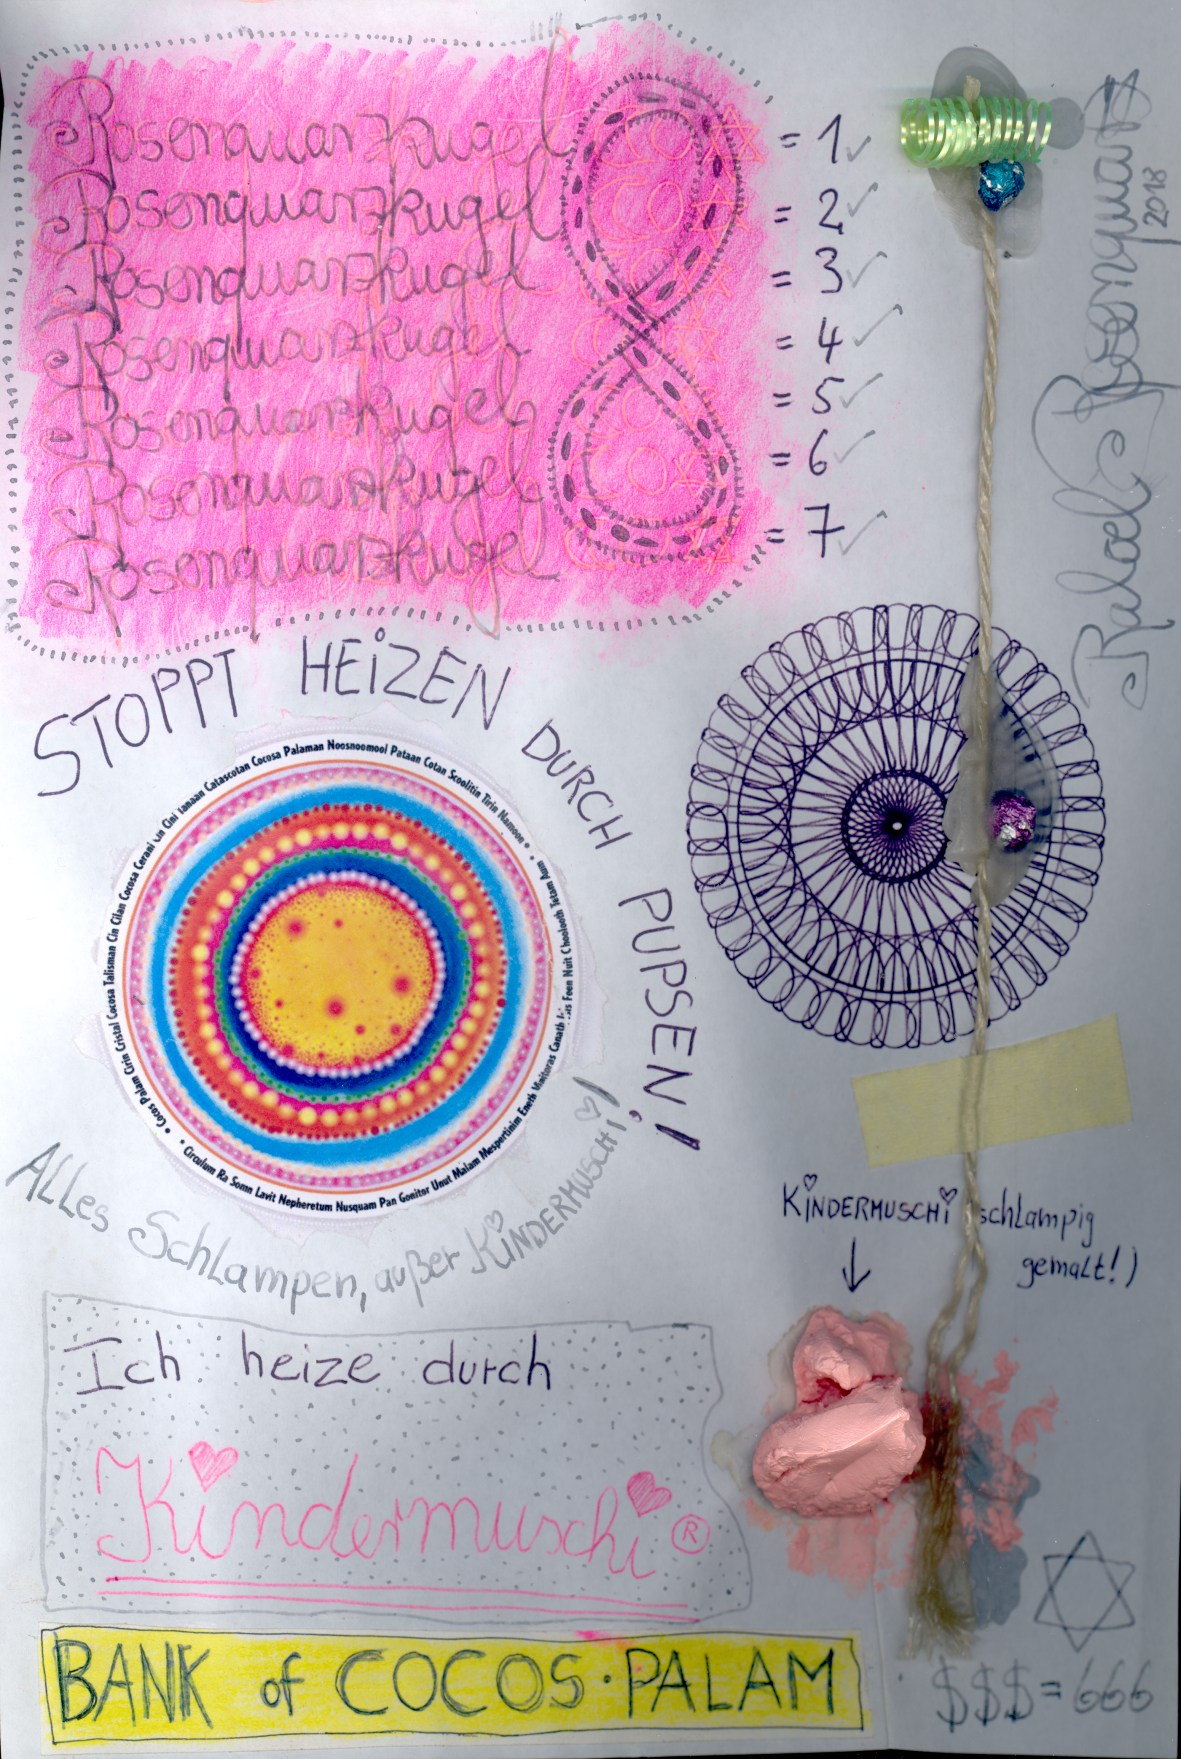 Rosenquarzkugel = 1
Rosenquarzkugel = 2
Rosenquarzkugel = 3
Rosenquarzkugel = 4
Rosenquarzkugel = 5
Rosenquarzkugel = 6
Rosenquarzkugel = 7
Rosenquarz
2018
STOPPT HEIZEN DURCH PUPSEN!
Cocos Palam Cirin Cristal Cocosa Talisman Cin Cilan Cocosa Cerani Cini Catascotan Cocosa Palaman Noosnoomooi Pataan Cotan Scoolitin Tirin Namoon
Circulum Ra Somn Lavit Nepheretum Nusquam Pan Gonitor Unut Malam Mesportinim Eneth Canath Feen Nuit Chooloeth Tetam Aum
ALLes Schlampen, außer KiNDERMUSCHi!
KiNDERMUSCHi schlampig
gemalt!)
Ich heize durch
Kindermuschi®
BANK of COCOS·PALAM
$$$=666